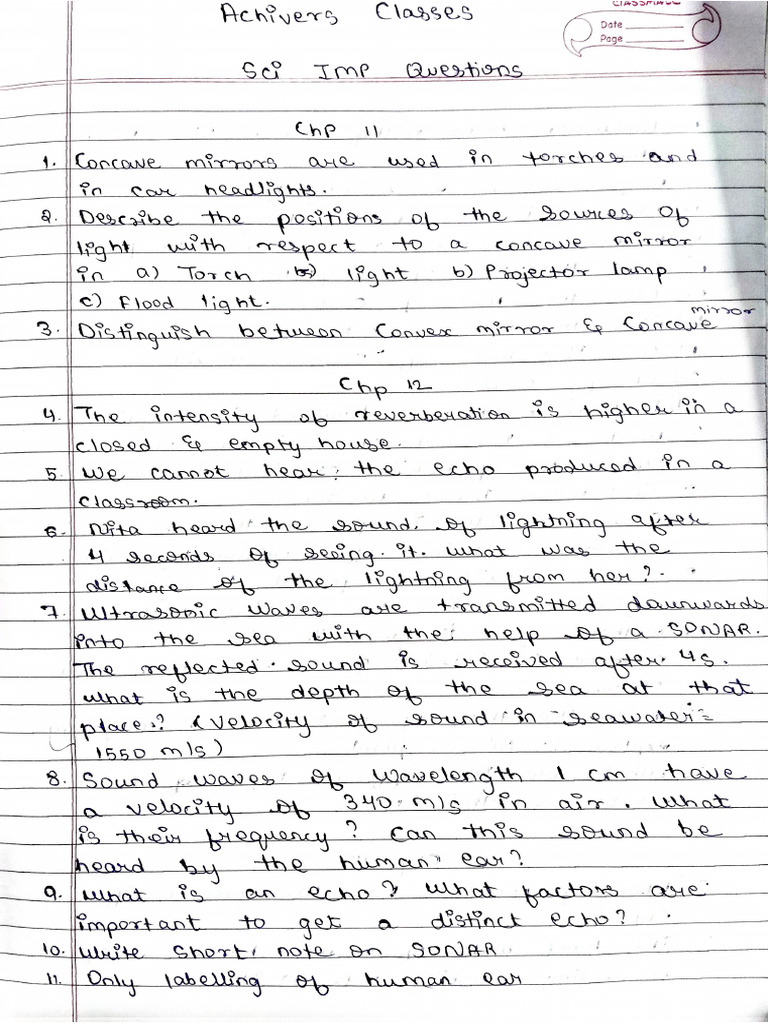 Achivers Classes
CLASSMATE
Date
Page
Sci Imp Questions
Chp 11
1. Concave mirrors are used in torches and
in car headlights.
2. Describe the positions of the sources of
light with respect to a concave mirror
in a) Torch light b) Projector lamp
c) Flood light.
3. Distinguish between Convex mirror & Concave mirror
Chp 12
4. The intensity of reverberation is higher in a
closed & empty house.
5. We cannot hear the echo produced in a
classroom.
6. Nita heard the sound of lightning after
4 seconds of seeing it. what was the
distance of the lightning from her?
7. Ultrasonic waves are transmitted daunwards
into the sea with the help of a SONAR.
The reflected sound is received after 4s.
what is the depth of the sea at that
place? (velocity of sound in seawater =
1550 m/s)
8. Sound waves of wavelength 1 cm have
a velocity of 340 m/s in air. What
is their frequency? Can this sound be
heard by the human ear?
9. What is an echo? What factors are
important to get a distinct echo?
10. Write short note on SONAR
11. Only labelling of human ear